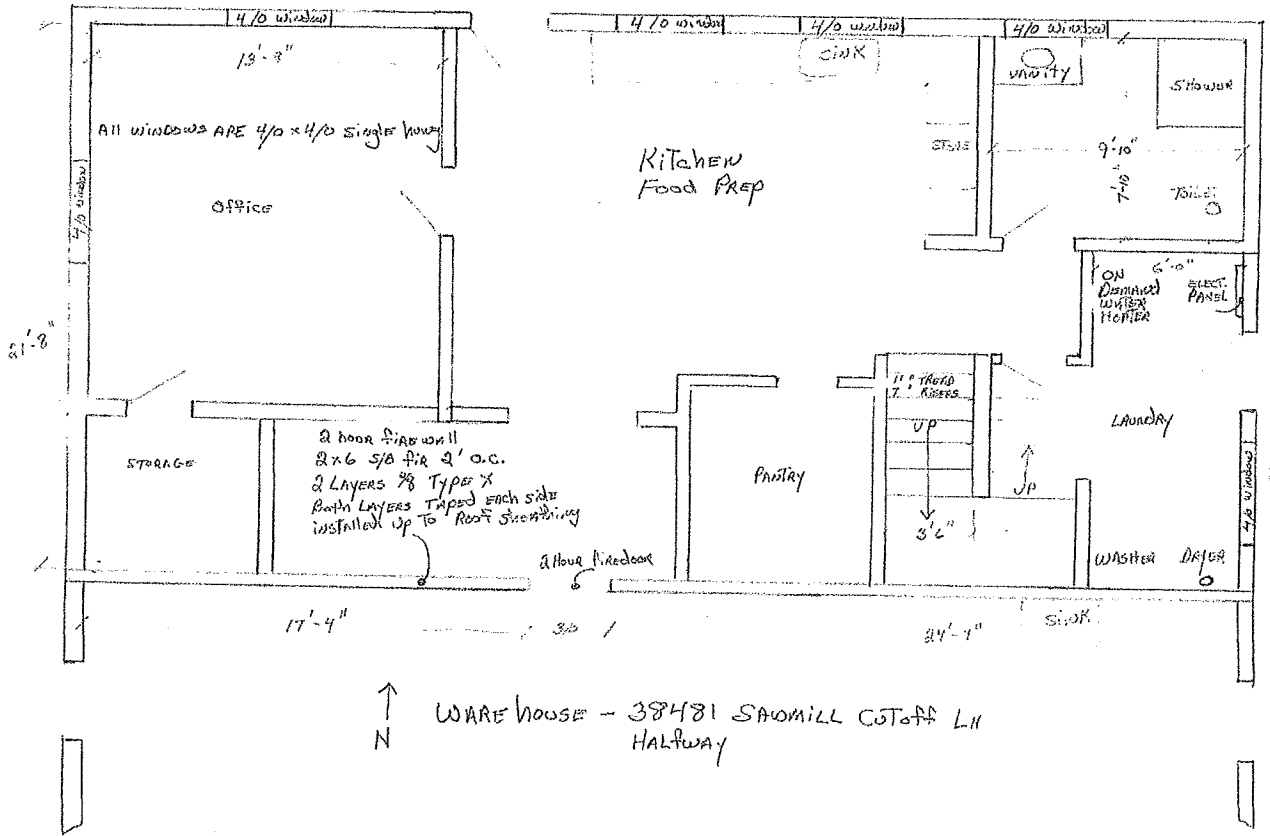 4/0 window
4/0 window
4/0 window
4/0 window
13'-8"
SINK
VANITY
SHOWER
All windows ARE 4/0 x 4/0 single hung
4/0 window
Office
KiTchEN
Food PREP
STOVE
9'-10"
7'-10"
TOILET
21'-8"
ON
DEMAND
WATER
HEATER
6'-0"
ELECT.
PANEL
11" TREAD
7" RISERS
UP
UP
3'6"
LAUNDRY
4/0 window
STORAGE
2 hour firewall
2x6 S/D fir 2' O.C.
2 LAYERS 5/8 Type X
Both LAYERS TAPED EACH side
installed up To Roof Sheathing
PANTRY
2 Hour firedoor
WASHER
DRYER
17'-4"
3/0
SINK
WAREhouse - 38481 SAWMILL CUToff LN
HALfwAY
N